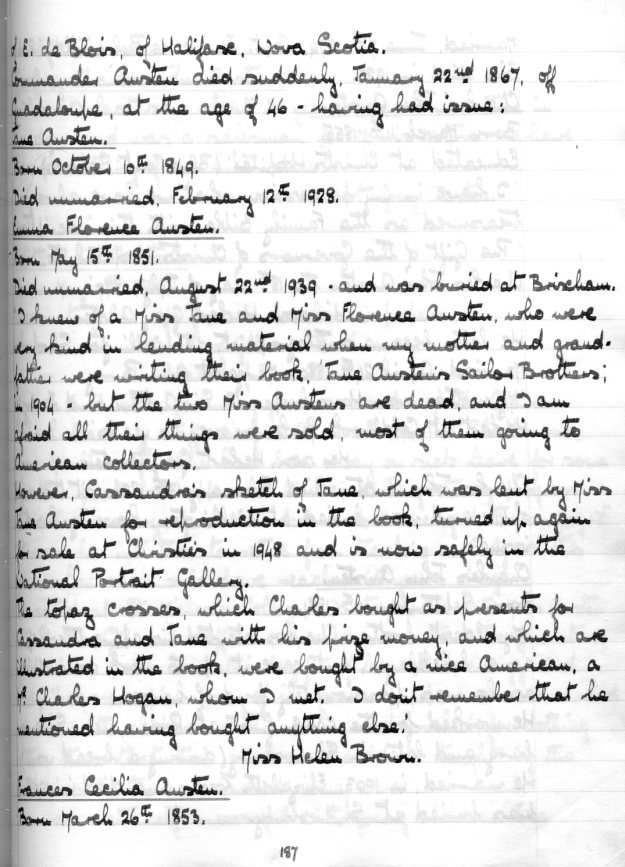 of E. de Blois, of Halifax, Nova Scotia.
Commander Austen died suddenly, January 22nd 1867, off
Guadaloupe, at the age of 46 - having had issue:
Jane Austen.
Born October 10th 1849.
Died unmarried, February 12th 1928.
Emma Florence Austen.
Born May 15th 1851.
Died unmarried, August 22nd 1939 - and was buried at Brixham.
'I knew of a Miss Jane and Miss Florence Austen, who were
very kind in lending material when my mother and grand-
father were writing their book, 'Jane Austen's Sailor Brothers;
in 1904 - but the two Miss Austens are dead, and I am
afraid all their things were sold, most of them going to
American collectors.
However, Cassandra's sketch of Jane, which was lent by Miss
Jane Austen for reproduction in the book, turned up again
for sale at Christie's in 1948 and is now safely in the
National Portrait Gallery.
The topaz crosses, which Charles bought as presents for
Cassandra and Jane with his prize money, and which are
illustrated in the book, were bought by a nice American, a
Mr. Charles Hogan, whom I met. I don't remember that he
mentioned having bought anything else.'
Miss Helen Brown.
Frances Cecilia Austen.
Born March 26th 1853.
187